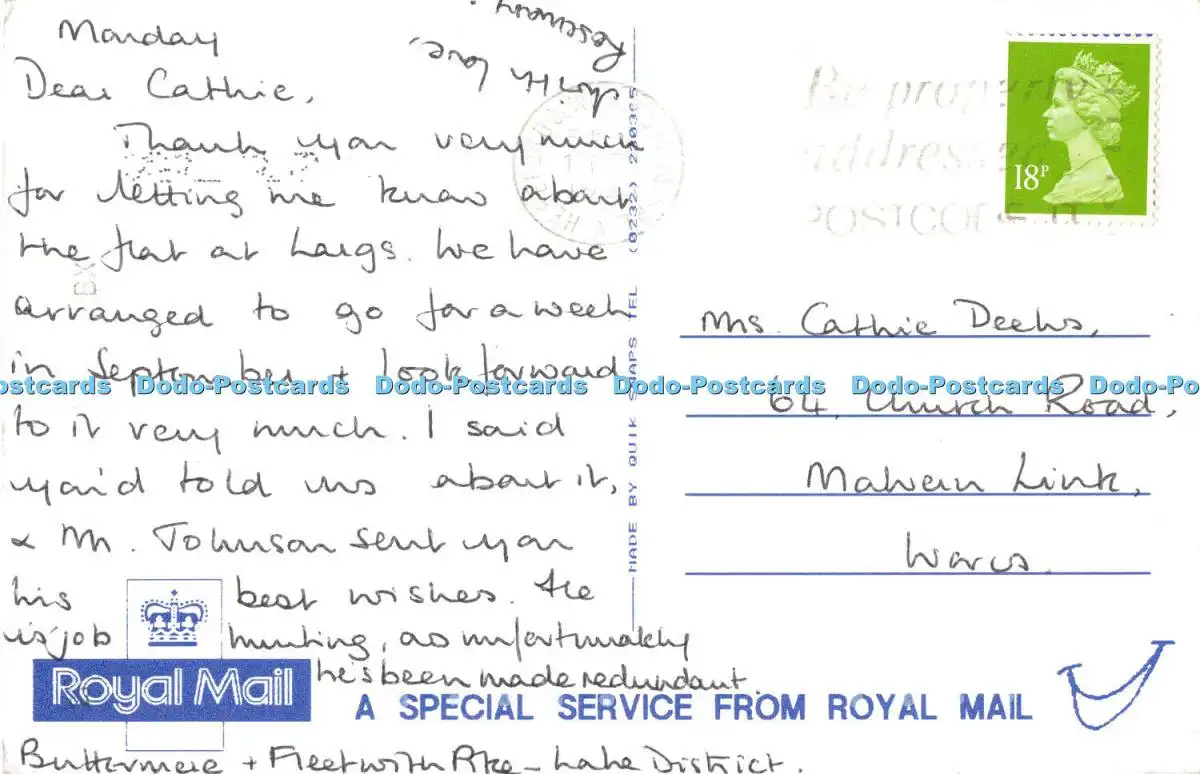 Monday
Dear Cathie,
Thank you very much
for letting me know about
the flat at Largs. We have
arranged to go for a week
in September + look forward
to it very much. I said
you'd told us about it,
& Mr. Johnson sent you
his best wishes. He
is job hunting, as unfortunately
he's been made redundant.
With love,
Rosemary.
Buttermere + Fleetwith Pike - Lake District.
Royal Mail
A SPECIAL SERVICE FROM ROYAL MAIL
MADE BY QUIK SNAPS TEL (0232)
BX
Be properly
addressed
POSTCODE IT
18P
Mrs. Cathie Deeks,
64, Church Road,
Malvern Link,
Worcs.
Dodo-Postcards Dodo-Postcards Dodo-Postcards Dodo-Postcards Dodo-Postcards